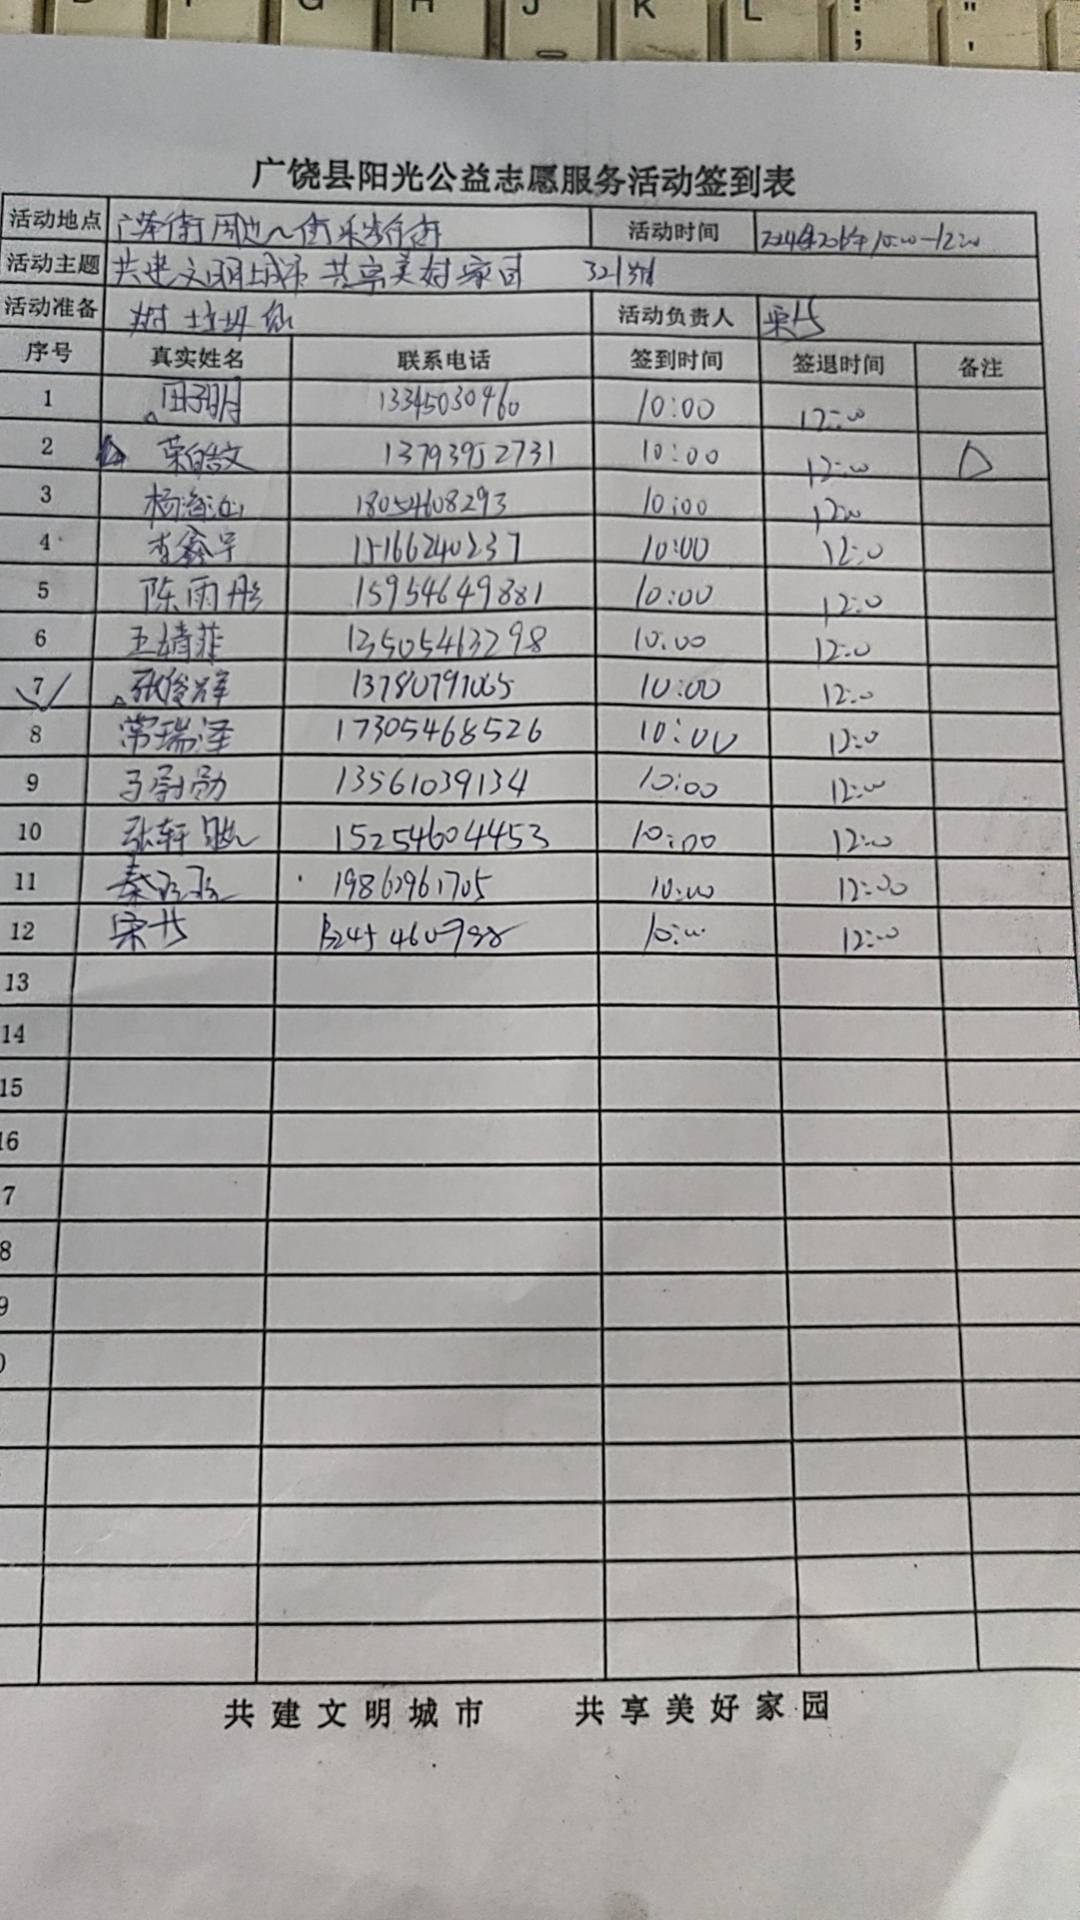 G H J K L : ; " '
广饶县阳光公益志愿服务活动签到表
活动地点 活动时间
活动主题 共建文明城市 共享美好家园 321
活动准备 垃圾 活动负责人
序号 真实姓名 联系电话 签到时间 签退时间 备注
1 田子玥 13345030960 10:00 12:00
2 荣皓文 13793952731 10:00 12:00
3 18054608293 10:00 12:00
4 李鑫宇 15166240237 10:00 12:0
5 陈雨彤 15954649881 10:00 12:0
6 王婧菲 13505463298 10:00 12:0
7 张俊泽 13780791065 10:00 12:0
8 常瑞泽 17305468526 10:00 12:0
9 13561039134 10:00 12:00
10 张轩 15254604453 10:00 12:0
11 秦 19862961705 10:00 12:00
12 10:00 12:00
13
14
15
16
7
8
9
0
共建文明城市 共享美好家园